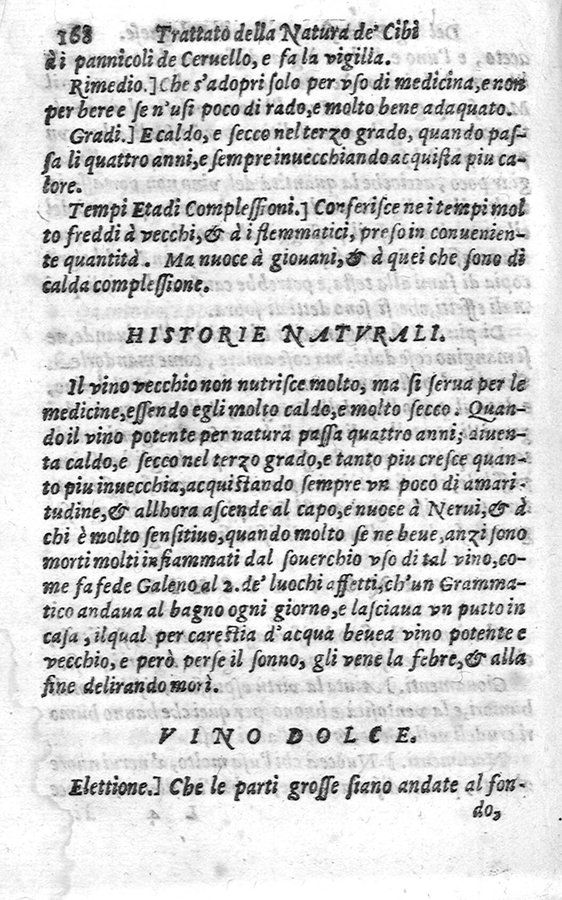 168 Trattato della Natura de' Cibi
à i pannicoli de Ceruello, e fa la vigilia.
Rimedio.] Che s'adopri solo per vso di medicina, e non
per bere e se n'usi poco di rado, e molto bene adaquato.
Gradi.] E caldo, e secco nel terzo grado, quando pas-
sa li quattro anni, e sempre inuecchiando acquista piu ca-
lore.
Tempi Etadi Complessioni.] Conferisce ne i tempi mol
to freddi à vecchi, & à i flemmatici, preso in conuenien-
te quantità. Ma nuoce à giouani, & à quei che sono di
calda complessione.
HISTORIE NATVRALI.
Il vino vecchio non nutrisce molto, ma si serua per le
medicine, essendo egli molto caldo, e molto secco. Quan-
do il vino potente per natura passa quattro anni, diuen-
ta caldo, e secco nel terzo grado, e tanto piu cresce quan-
to piu inuecchia, acquistando sempre vn poco di amari-
tudine, & allhora ascende al capo, e nuoce à Nerui, & à
chi è molto sensitiuo, quando molto se ne beue, anzi sono
morti molti infiammati dal souerchio vso di tal vino, co-
me fa fede Galeno al 2. de' luochi affetti, ch'un Gramma-
tico andaua al bagno ogni giorno, e lasciaua vn putto in
casa, ilqual per carestia d'acqua beuea vino potente e
vecchio, e però perse il sonno, gli vene la febre, & alla
fine delirando morì.
VINO DOLCE.
Elettione.] Che le parti grosse siano andate al fon-
do,